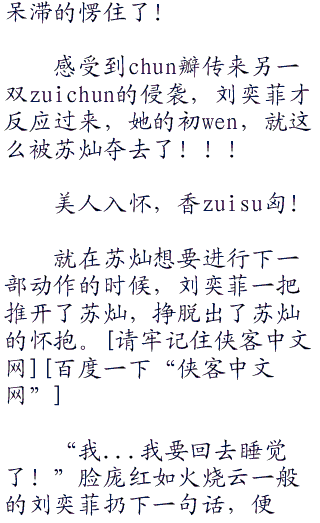 呆滞的愣住了！
感受到chun瓣传来另一
双zuichun的侵袭，刘奕菲才
反应过来，她的初wen，就这
么被苏灿夺去了！！！
美人入怀，香zuisu匈！
就在苏灿想要进行下一
部动作的时候，刘奕菲一把
推开了苏灿，挣脱出了苏灿
的怀抱。[请牢记住侠客中文
网][百度一下“侠客中文
网”]
“我...我要回去睡觉
了！”脸庞红如火烧云一般
的刘奕菲扔下一句话，便